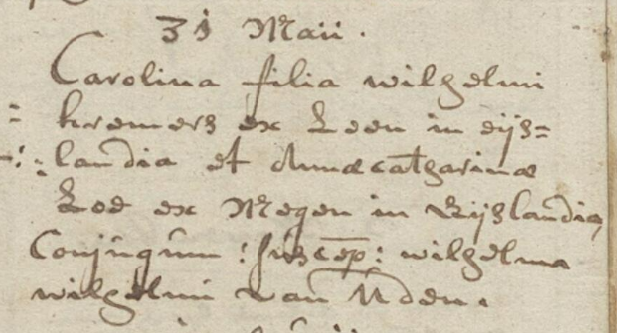 31 Maii.
Carolina filia wilhelmi
= kremers ex Leen in eijs=
landia et Annæ catharinæ
Loe ex Megen in Eijslandia,
Conjugum : suscep: wilhelma
wilhelmi van Uden.